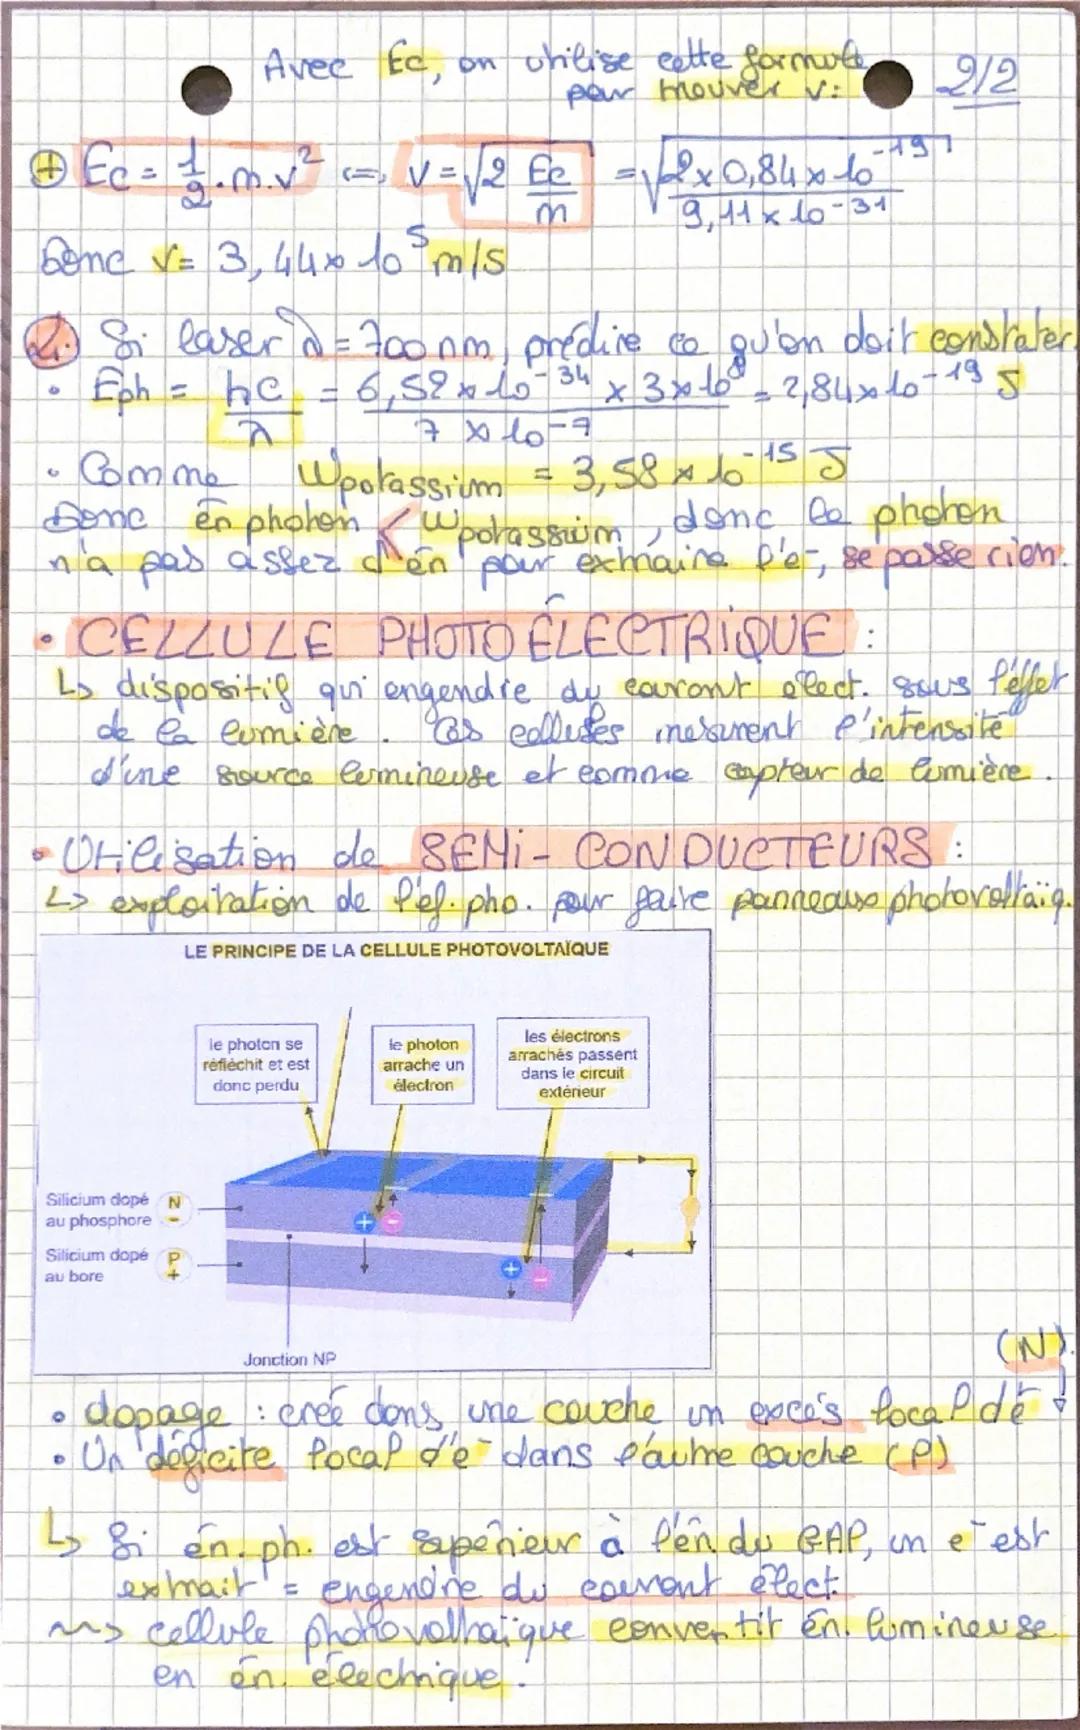 Avec Ec, on utilise cette formule
pour trouver v:
2/2
+ Ec = 1/2 . m . v² <=> v = √(2 Ec/m) = √(2 x 0,84 x 10^-19 / 9,11 x 10^-31)
Donc v = 3,44 x 10^5 m/s
2. Si laser λ = 700 nm, prédire ce qu'on doit constater
• Eph = hc/λ = 6,52 x 10^-34 x 3 x 10^8 / 7 x 10^-7 = 2,84 x 10^-19 J
• Comme Wpotassium = 3,58 x 10^-15 J
Donc én photon < Wpotassium, donc le photon
n'a pas assez d'én pour extraire l'e-, se passe rien.
• CELLULE PHOTOÉLECTRIQUE :
↳ dispositif qui engendre du courant élect. sous l'effet
de la lumière. Ces cellules mesurent l'intensité
d'une source lumineuse et comme capteur de lumière.
• Utilisation de SEMI-CONDUCTEURS :
↳ exploitation de l'ef. pho. pour faire panneaux photovoltaïq.
LE PRINCIPE DE LA CELLULE PHOTOVOLTAÏQUE
le photon se
réfléchit et est
donc perdu
le photon
arrache un
électron
les électrons
arrachés passent
dans le circuit
extérieur
Silicium dopé
au phosphore
N
-
Silicium dopé
au bore
P
+
+ -
+ -
Jonction NP
(N).
• dopage : créé dans une couche un excès local d'e-
• Un déficite local d'e- dans l'autre couche (P)
↳ Si én. ph. est supérieur à l'én du GAP, un e- est
extrait = engendre du courant élect.
~~> cellule photovoltaïque convertit én. lumineuse
en én. électrique.